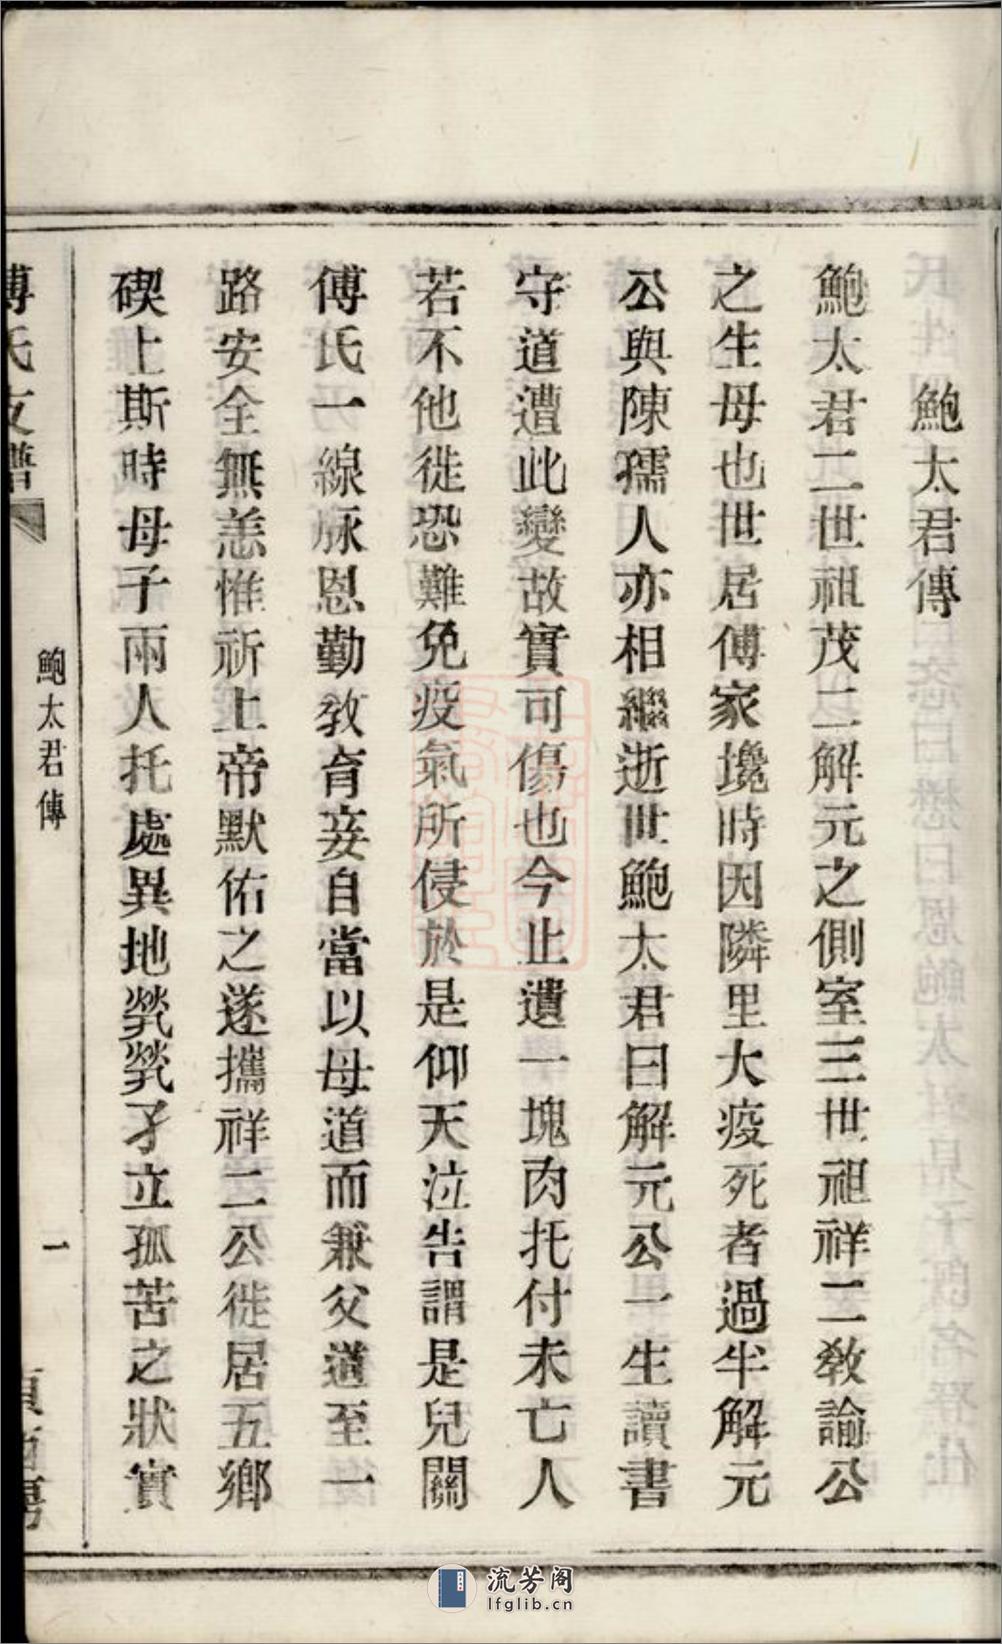 鮑太君傳
鮑太君二世祖茂二解元之側室三世祖祥二教諭公
之生母也世居傅家堍時因隣里大疫死者過半解元
公與陳孺人亦相繼逝世鮑太君曰解元公一生讀書
守道遭此變故實可傷也今止遺一塊肉托付未亡人
若不他徙恐難免疫氣所侵於是仰天泣告謂是兒關
傅氏一線脉恩勤敎育妾自當以母道而兼父道至一
路安全無恙惟祈上帝默佑之遂攜祥二公徙居五鄉
碶上斯時母子兩人托處異地煢煢孑立孤苦之狀實
傅氏支譜
鮑太君傳
一
流芳阁
lfglib.cn